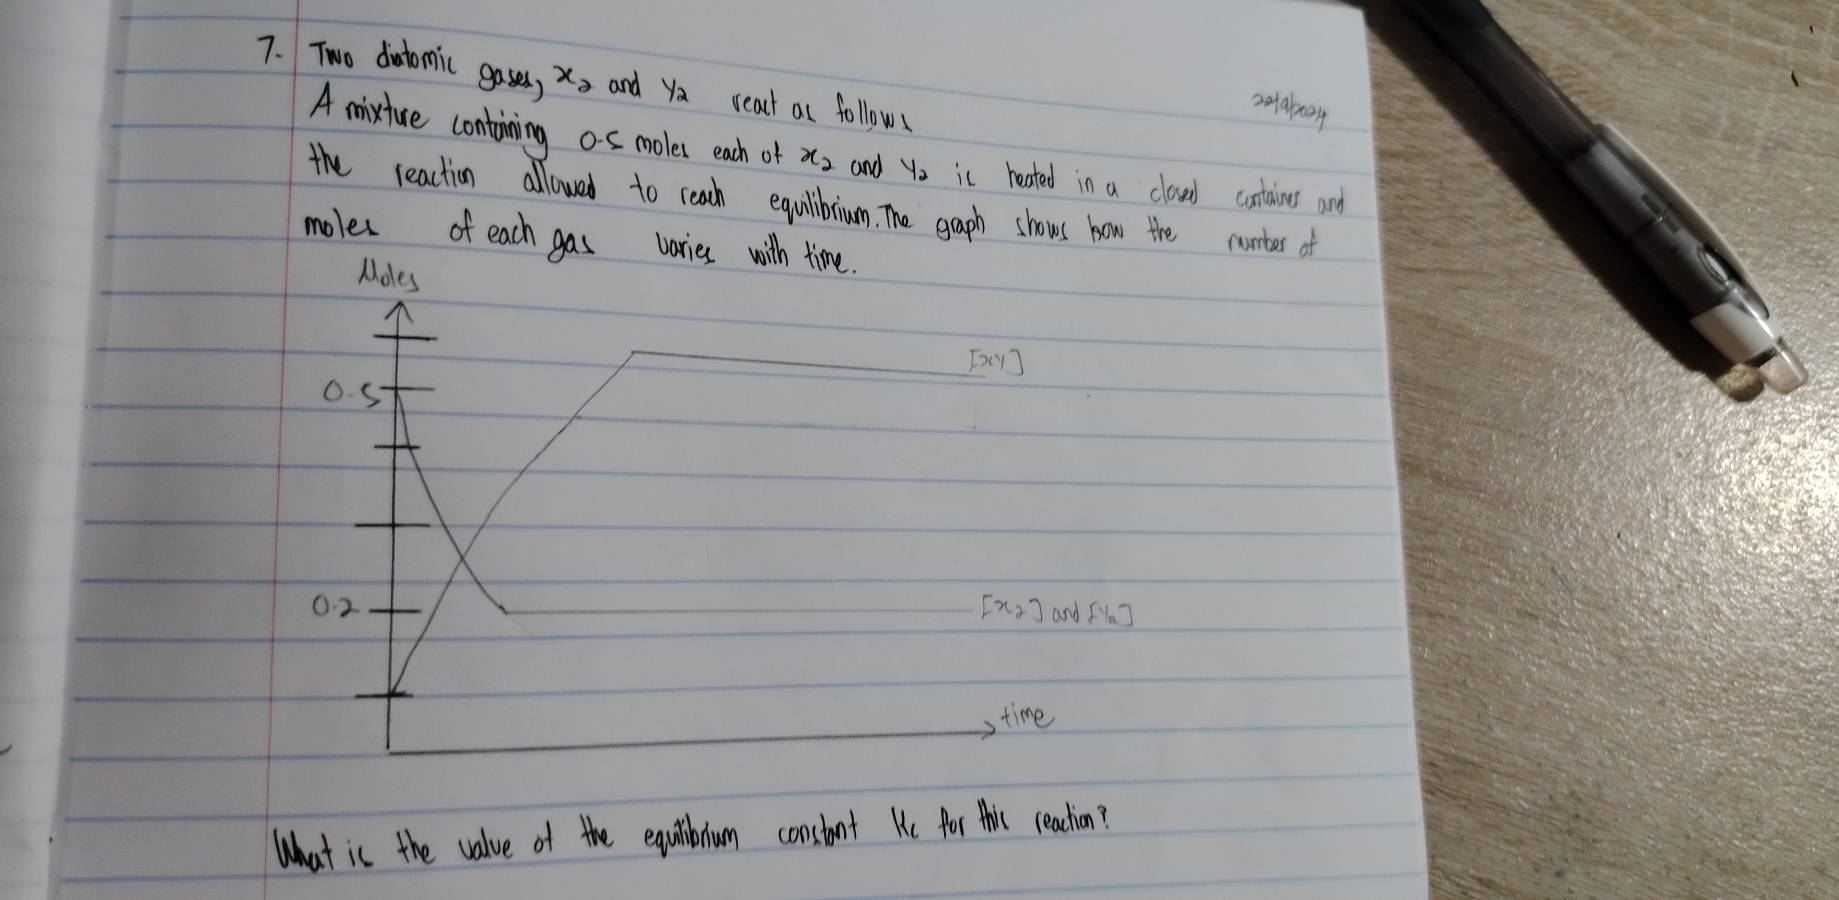 7. Two diatomic gases, x₂ and y₂ react as follows
22/9/2024
A mixture containing 0.5 moles each of x₂ and y₂ is heated in a closed container and
the reaction allowed to reach equilibrium. The graph shows how the number of
moles of each gas varies with time.
Moles
[xy]
0.5
0.2
[x₂] and [y₂]
time
What is the value of the equilibrium constant Kc for this reaction?